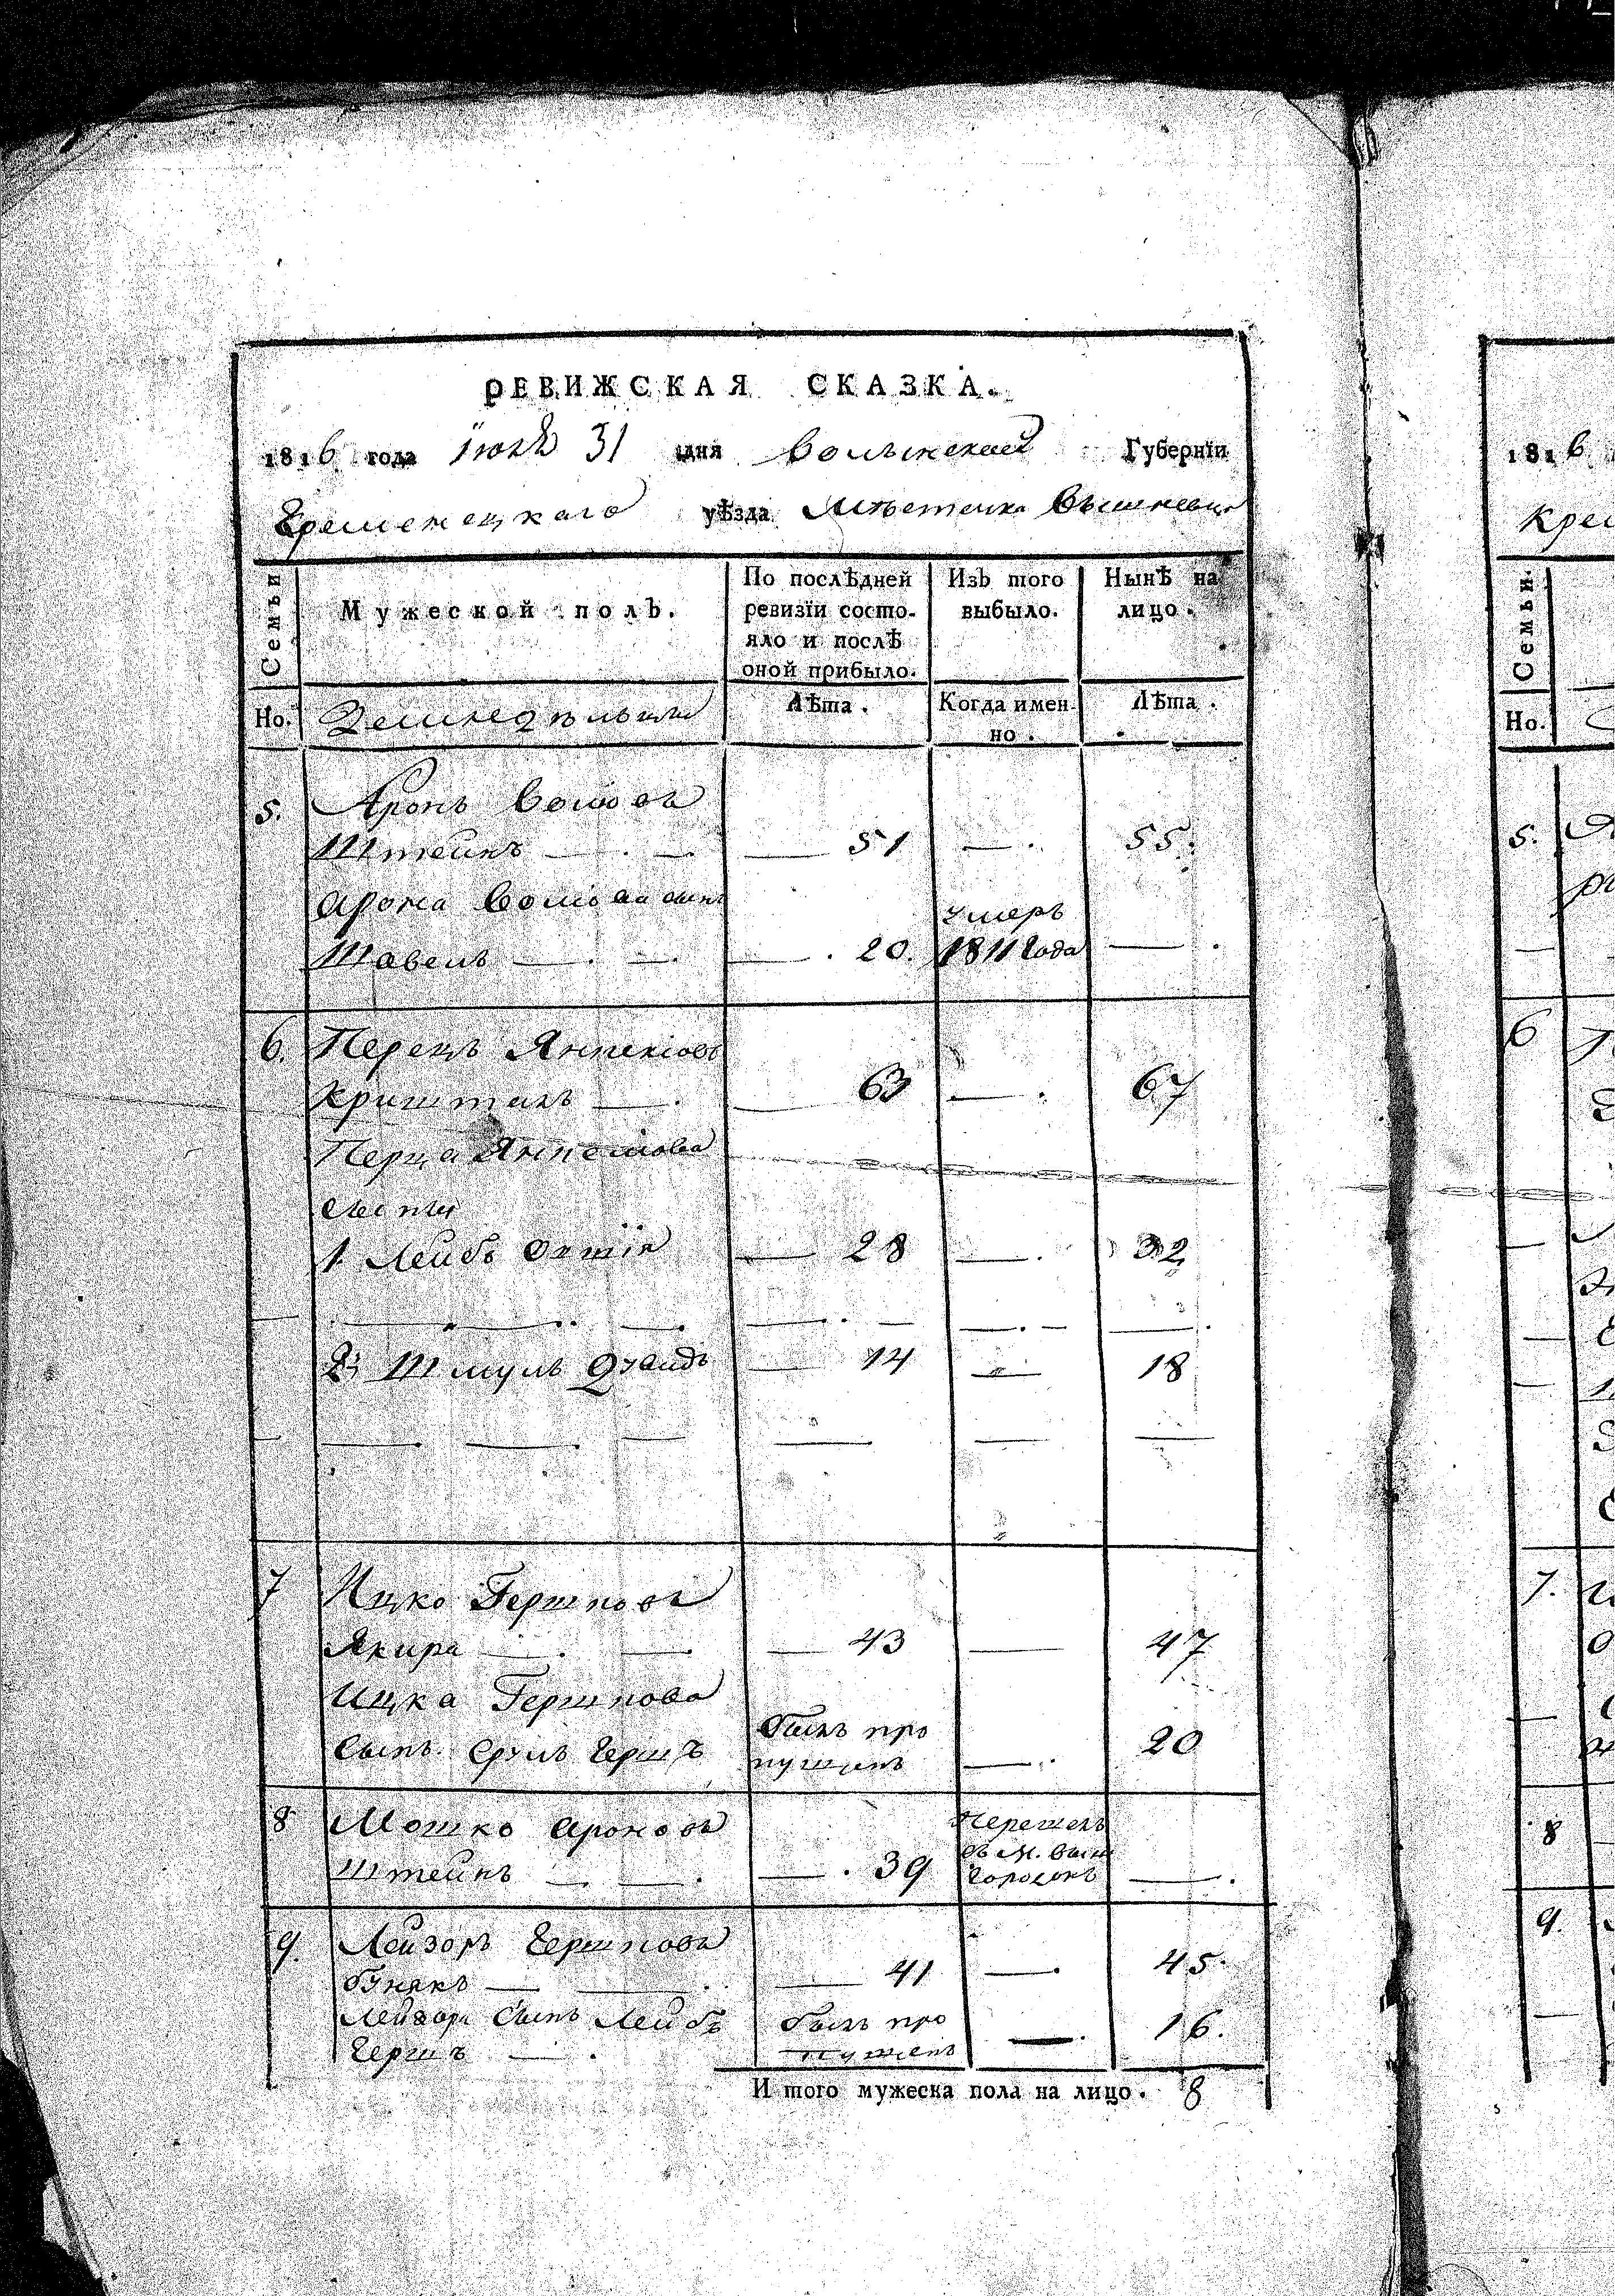 РЕВИЖСКАЯ СКАЗКА.
1816 года Июля 31 дня Волынской Губерніи
Кременецкаго уѣзда Мѣстечка Вышневца
Семьи
Мужеской полъ.
По послѣдней ревизіи состо-
яло и послѣ
оной прибыло.
Изъ того
выбыло.
Нынѣ на
лицо.
Но. Лѣта. Когда имен-
но. Лѣта.
5. Аронъ
Штейнъ — 51 — 55.
Арона сынъ
умеръ
— 20. 1811 года —
6. Перецъ
Криштал — 63 — 67
Перца
1 Лейбъ — 28 — 32
2й Шмуль — 14 — 18
7 Ицко Гершковъ
Якира — 43 — 47
Ицка Гершкова
Сынъ Срулъ Гершъ былъ про
пущенъ — 20
8 Мошко Ароновъ
Штейнъ — 39 Перешелъ
въ М.
городокъ —
9. Лейзоръ Гершковъ
— 41 — 45.
Лейзора Сынъ Лейбъ
Гершъ — былъ про
пущенъ — 16.
И того мужеска пола на лицо. 8
1816
Кре
Семьи.
Но.
5.
6
7.
8
9.